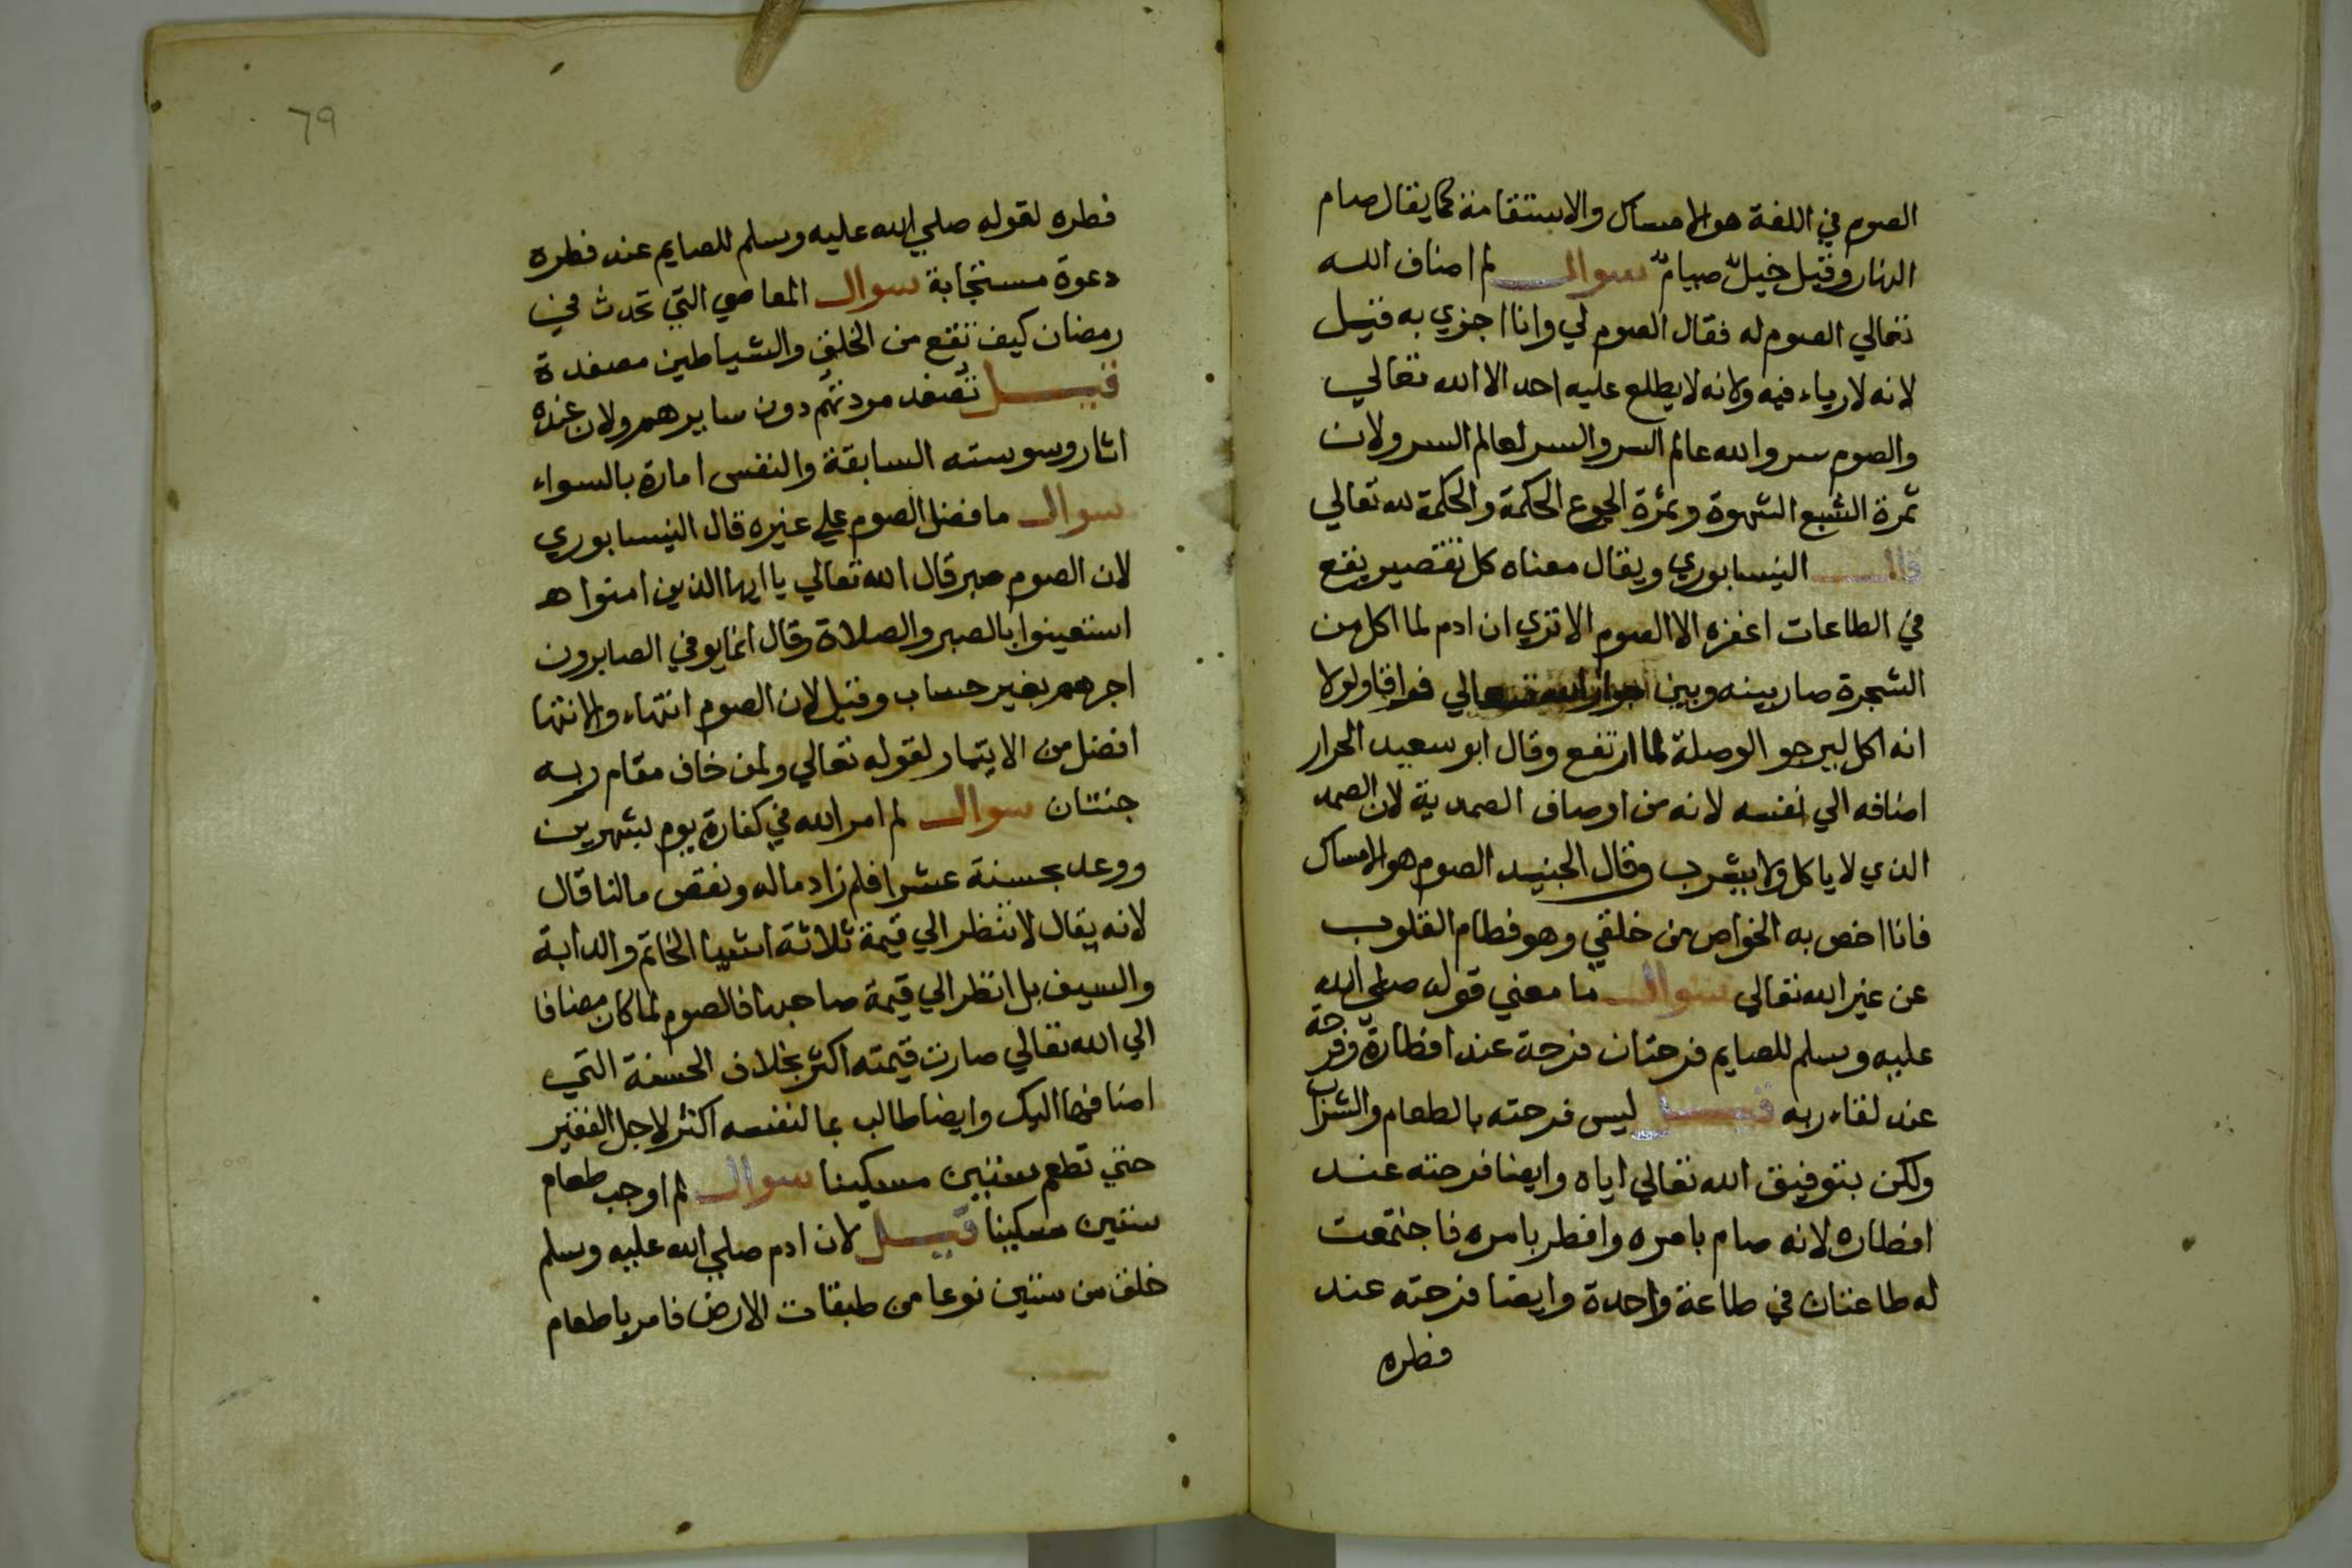 الصوم في اللغة هو الامساك والاستقامة كما يقال صام
النهار وقيل خيلٌ صيامٌ سوال لم اضاف الله
تعالي الصوم له فقال الصوم لي وانا اجزي به قيل
لانه لا رياء فيه ولانه لا يطلع عليه احد الا الله تعالي
والصوم سر والله عالم السر والسر لعالم السر ولان
ثمرة الشبع الشهوة وثمرة الجوع الحكمة والحكمة لله تعالي
قال النيسابوري ويقال معناه كل تقصير يقع
في الطاعات اغفره الا الصوم الا تري ان ادم لما اكل من
الشجرة صار بينه وبين تعالي فراقا ولولا
انه اكل ليرجو الوصلة لما ارتفع وقال ابو سعيد الحرار
اضافه الي نفسه لانه من اوصاف الصمدية لان الصمد
الذي لا ياكل ولا يشرب وقال الجنيد الصوم هو الامساك
فانا اخص به الخواص من خلقي وهو فطام القلوب
عن غير الله تعالي سوال ما معني قوله صلي الله
عليه وسلم للصايم فرحتان فرحة عند افطاره وفرحة
عند لقاء ربه قيل ليس فرحته بالطعام والشراب
ولكن بتوفيق الله تعالي اياه وايضا فرحته عند
افطاره لانه صام بامره وافطر بامره فاجتمعت
له طاعتان في طاعة واحدة وايضا فرحته عند
فطره
٦٩
فطره لقوله صلي الله عليه وسلم للصايم عند فطره
دعوة مستجابة سوال المعاصي التي تحدث في
رمضان كيف تقع من الخلق والشياطين مصفدة
قيل تصفد مردتهم دون سايرهم ولان عنده
اثار وسوسته السابقة والنفس امارة بالسواء
سوال ما فضل الصوم علي غيره قال النيسابوري
لان الصوم صبر قال الله تعالي يا ايها الذين امنوا هـ
استعينوا بالصبر والصلاة وقال انما يوفي الصابرون
اجرهم بغير حساب وقيل لان الصوم انتهاء والانتها
افضل من الايتمار لقوله تعالي ولمن خاف مقام ربه
جنتان سوال لم امر الله في كفارة يوم بشهرين
ووعد بحسنة عشرا فلم زاد ماله ونقص مالنا قال
لانه يقال لا تنظر الي قيمة ثلاثة اشيا الخاتم والدابة
والسيف بل انظر الي قيمة صاحبها فالصوم لما كان مضافا
الي الله تعالي صارت قيمته اكثر بخلاف الحسنة التي
اضافها اليك وايضا طالب بما لنفسه اكثر لاجل الفقير
حتي تطعم ستين مسكينا سوال لم اوجب طعام
ستين مسكينا قيل لان ادم صلي الله عليه وسلم
خلق من ستين نوعا من طبقات الارض فامر باطعام